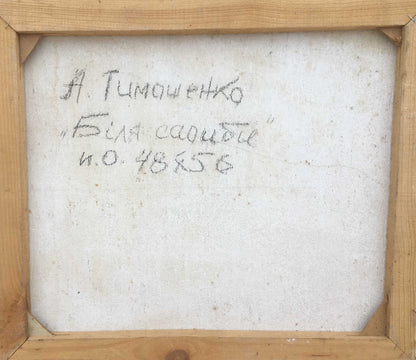 А. Тимошенко
„Біля садиби"
п.о. 48х56